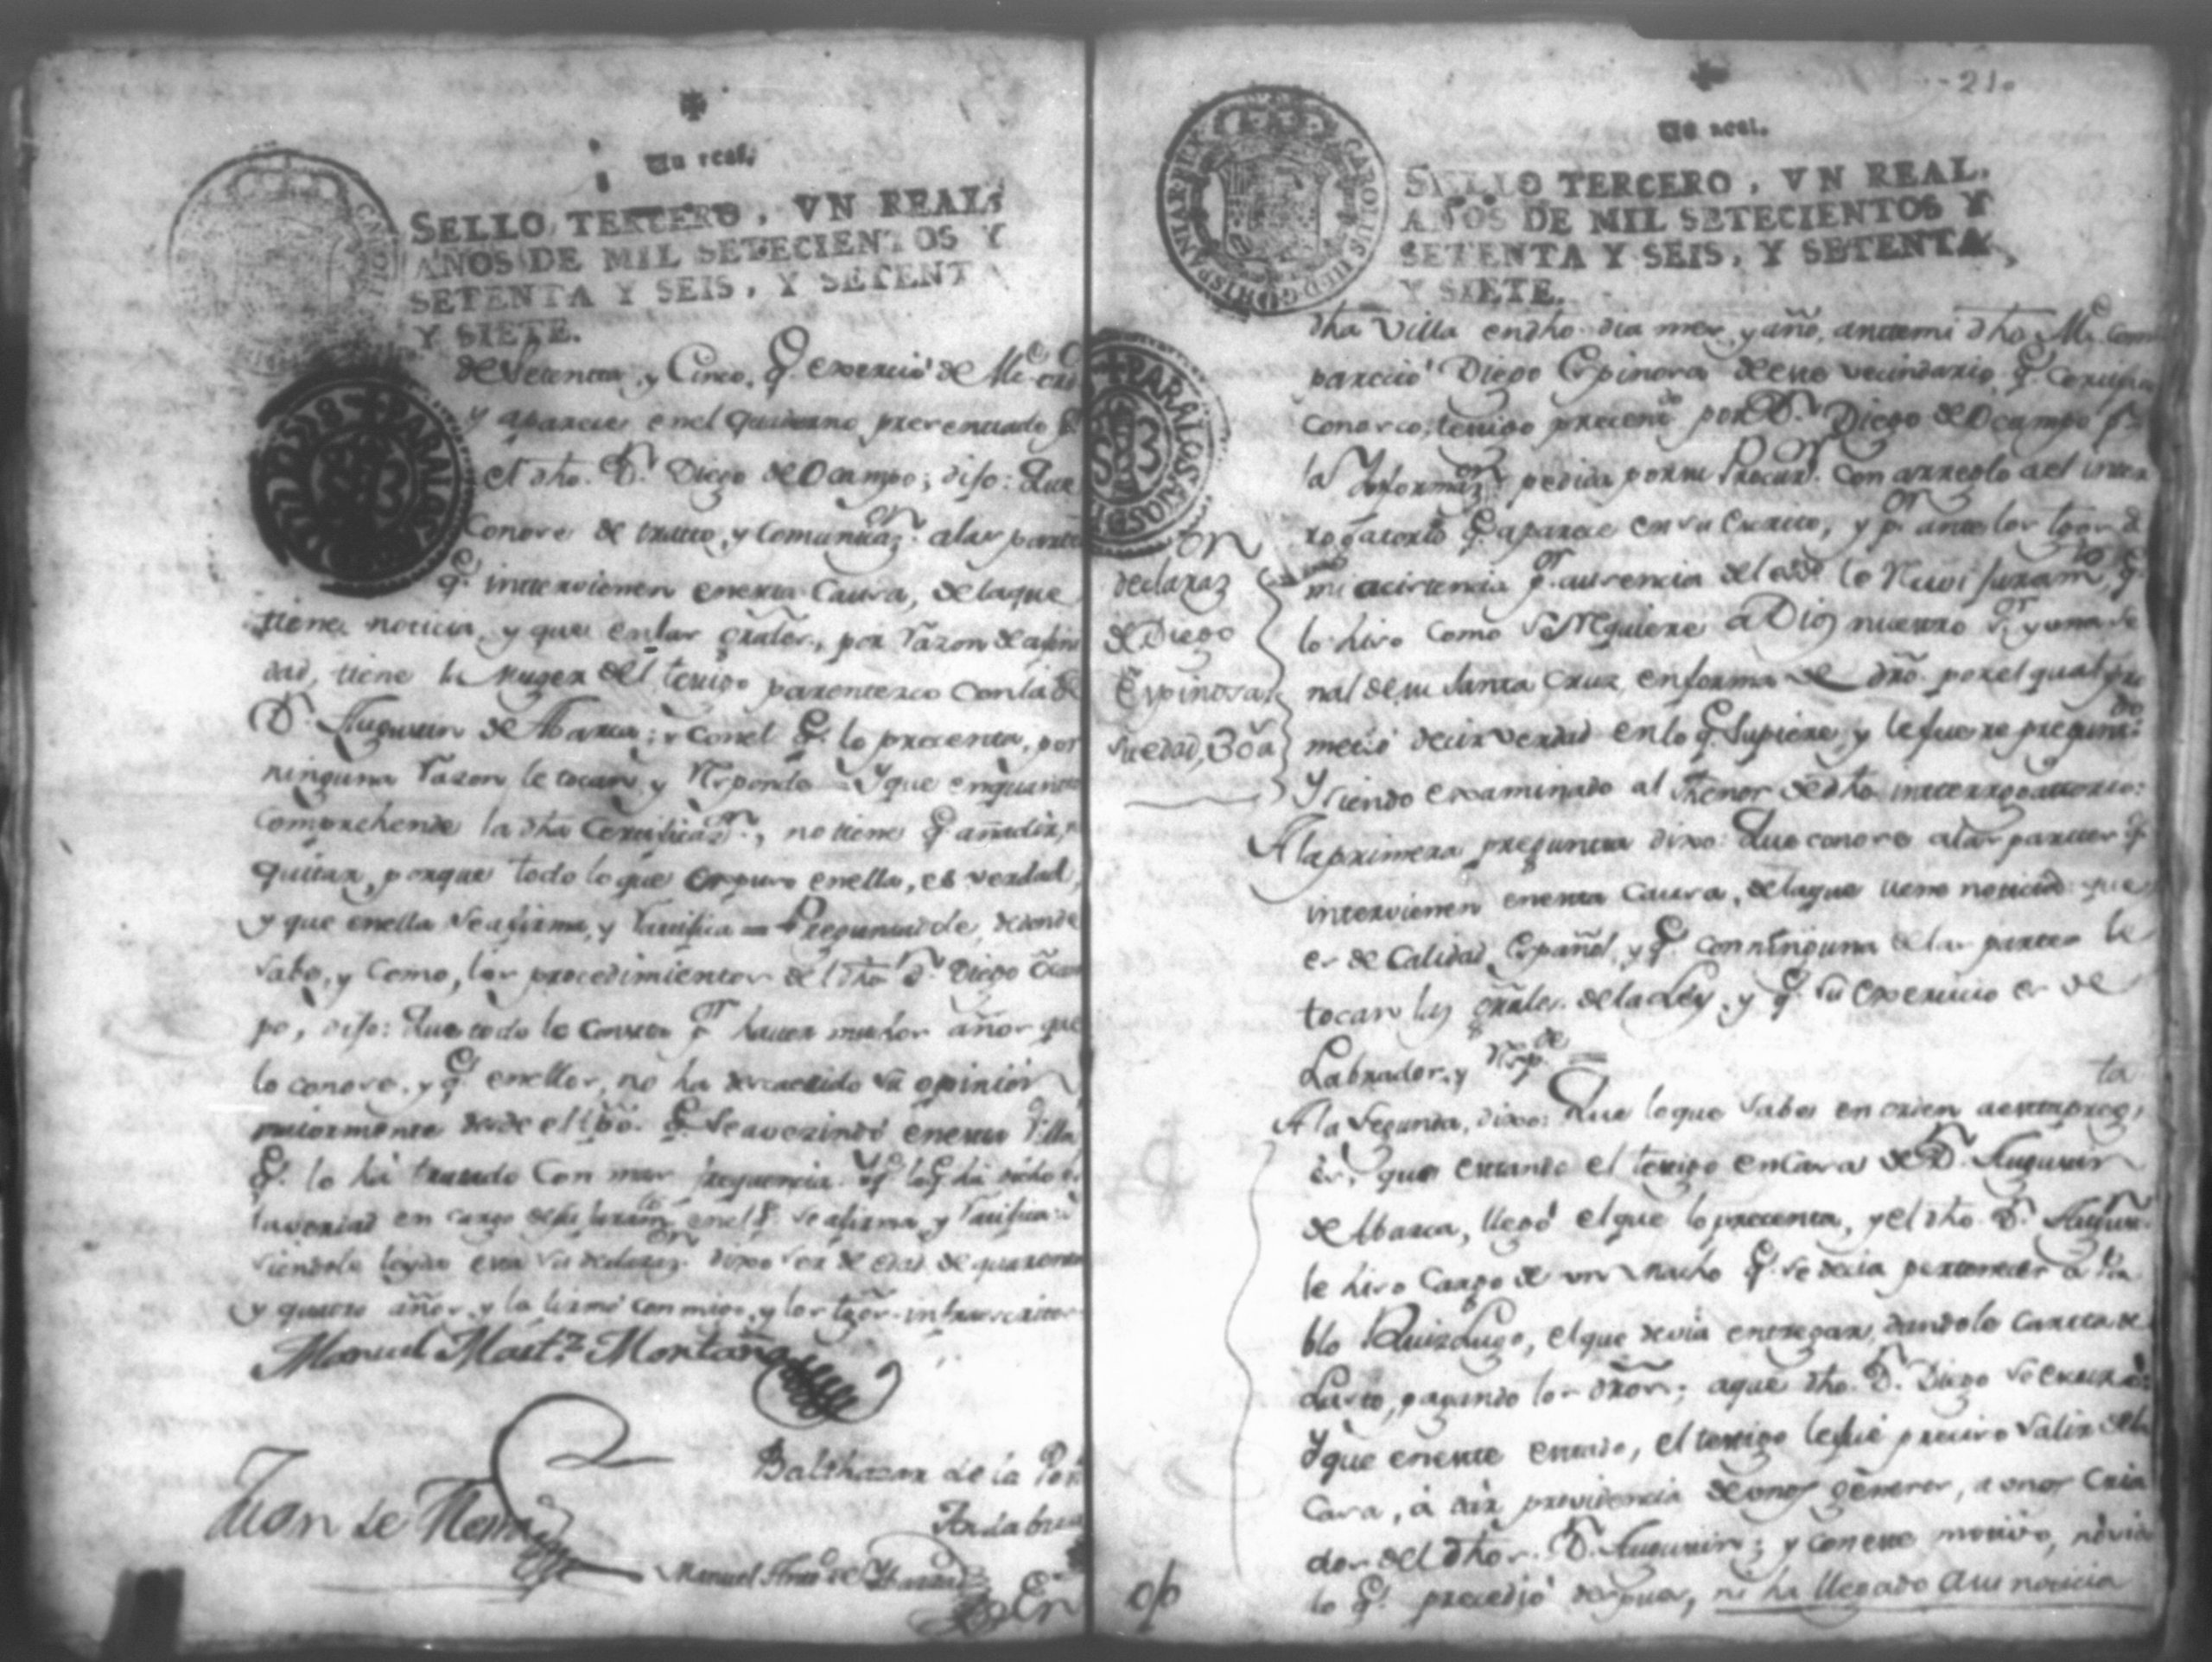 Un real.
SELLO TERCERO, VN REAL,
AÑOS DE MIL SETECIENTOS Y
SETENTA Y SEIS, Y SETENTA
Y SIETE.
de Setenta, y Cinco, q.e exerció de
y aparece en el quaderno presentado
el dho. D.n Diego de Ocampo; dijo: Que
Conose de tratto, y Comunicaz.on a las partes
q.e intervienen en esta Causa, de la que
tiene noticia, y que en las grâles, por razon de afini
dad, tiene la Muger del testigo parentesco con la de
D.n Augustin de Abarca; y con el q.e lo precenta, por
ninguna razon le tocan, y Responde = Y que en quanto
Comprehende la dha Certificaz.on, no tiene q.e añadir,
quitar, porque todo lo que expuso en ella, es verdad,
y que en ella se afirma, y ratifica = Preguntadole, de donde
sabe, y Como, los procedimientos del dho D.n Diego Ocam
po, dijo: Que todo le Consta p.r haver muchos años que
lo conose, y q.e en ellos, no ha descaecido su opinion
maiormente desde el tpô. q.e se avezindó en esta Villa
q.e lo há tratado Con mas frequencia. Y q.e lo q.e ha dicho es
la verdad en cargo de su juram.to en el q.e se afirma, y ratifica:
siendole leyda esta su declaraz.on dixo ser de edad de quarenta
y quatro años, y la firmó conmigo, y los tgôs. infraescritos
Manuel Mart.z Montaño
Juan de
Balthazar de la
Manuel
21.
Un real.
SELLO TERCERO, VN REAL,
AÑOS DE MIL SETECIENTOS Y
SETENTA Y SEIS, Y SETENTA
Y SIETE.
CAROLUS III D G HISPANIAR REX
PARA LOS AÑOS DE
declaraz.on
de Diego
Espinosa
su edad, 30 a.
dha Villa en dho dia mes, y año, ante mi dho Com
pareció Diego Espinosa de este vecindario, q.e
conosco, testigo precent.do por D.n Diego de Ocampo p.a
la Informaz.on pedida por su Procur.or Con arreglo a el inter
rogatorio q.e aparece en su Escrito, y p.r ante los tgos de
mi acistencia p.r ausencia del le Recivi juram.to q.e
lo hiso Como se Requiere a Dios nuestro S.or y una se
ñal de su Santa Cruz, en forma de drô. por el qual pro
metió decir verdad en lo q.e Supiere, y le fuere pregunt.do
Y siendo examinado al thenor de dho interrogatorio:
A la primera pregunta dixo: Que conose a las partes q.e
intervienen en esta Causa, de la que tiene noticia: que
es de Calidad Español, y q.e con ninguna de las partes le
tocan las grâles. de la Ley, y q.e su Exercicio es de
Labrador, y Resp.de =
A la Segunda, dixo: Que lo que sabe en orden a esta preg.ta
es, que estando el testigo en Casa de D.n Augustin
de Abarca, llegó el que lo precenta, y el dho. D.n Augustin
le hiso Cargo de un Macho q.e se decia pertenecer a Pa
blo Ruiz Lugo, el que devia entregar, dandole Carta de
Lasto, pagando los drôs; a que dho. D.n Diego se escusó:
Y que en este estado, el testigo le fué preciso salir de la
Casa, á dar providencia de unos géneros, a unos Cria
dos del dho. D.n Augustin; y con este motivo, no vio
lo q.e precedió despues, ni ha llegado a su noticia